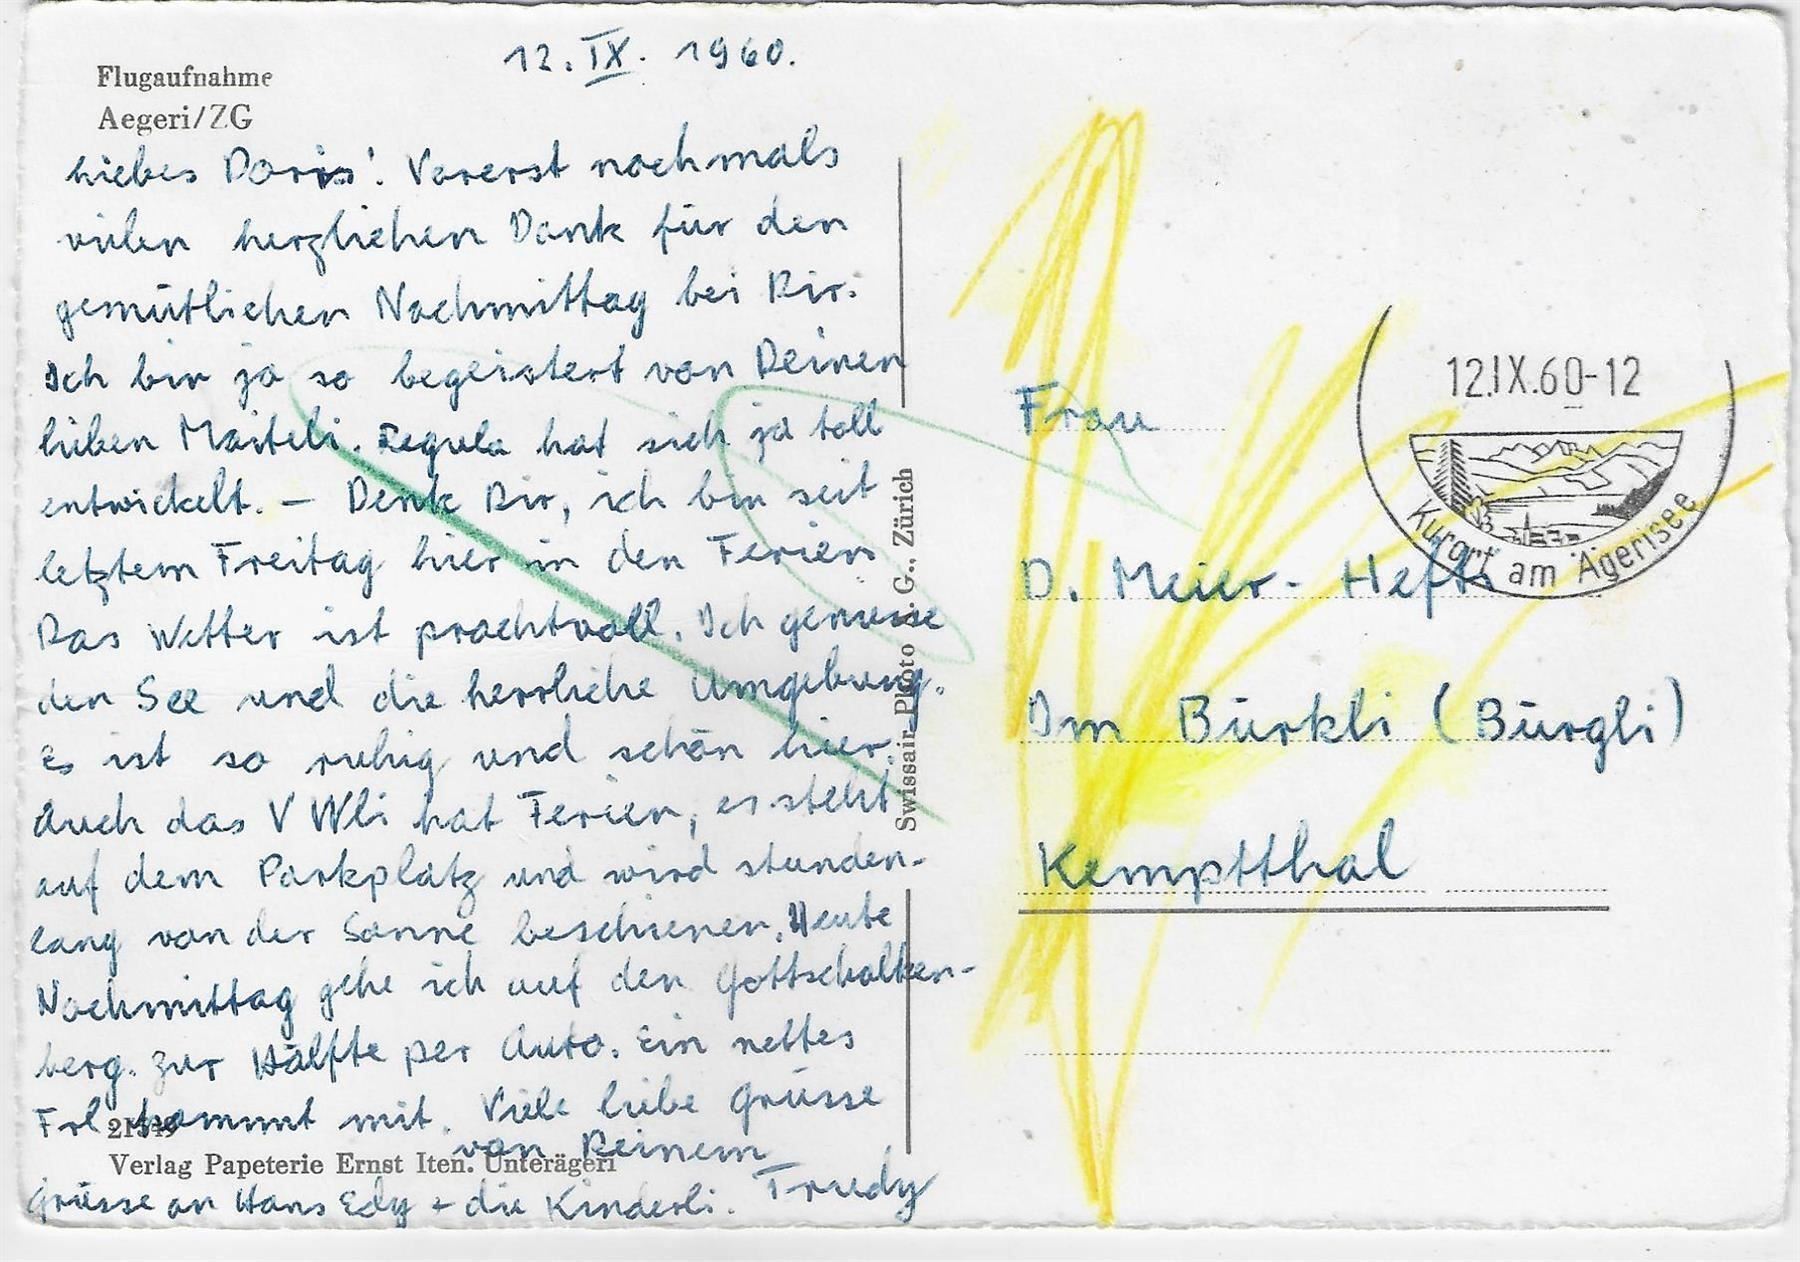 12. IX. 1960.
Flugaufnahme
Aegeri/ZG
Liebes Doris! Vorerst nochmals
vielen herzlichen Dank für den
gemütlichen Nachmittag bei Dir.
Ich bin ja so begeistert von Deinen
lieben Maiteli. Regula hat sich ja toll
entwickelt. – Denk Dir, ich bin seit
letztem Freitag hier in den Ferien
Das Wetter ist prachtvoll. Ich geniesse
den See und die herrliche Umgebung.
Es ist so ruhig und schön hier.
Auch das VWli hat Ferien, es steht
auf dem Parkplatz und wird stunden-
lang von der Sonne beschienen. Heute
Nachmittag gehe ich auf den Gottschalken-
berg. zur Hälfte per Auto. Ein nettes
Frl. kommt mit. Viele liebe Grüsse
von Deinem
Trudy
Grüsse an Hans Edy + die Kinderli.
Verlag Papeterie Ernst Iten. Unterägeri
Swissair-Photo A. G., Zürich
12.IX.60-12
Kurort am Ägerisee
Frau
D. Meier - Hefti
Im Bürkli (Bürgli)
Kemptthal